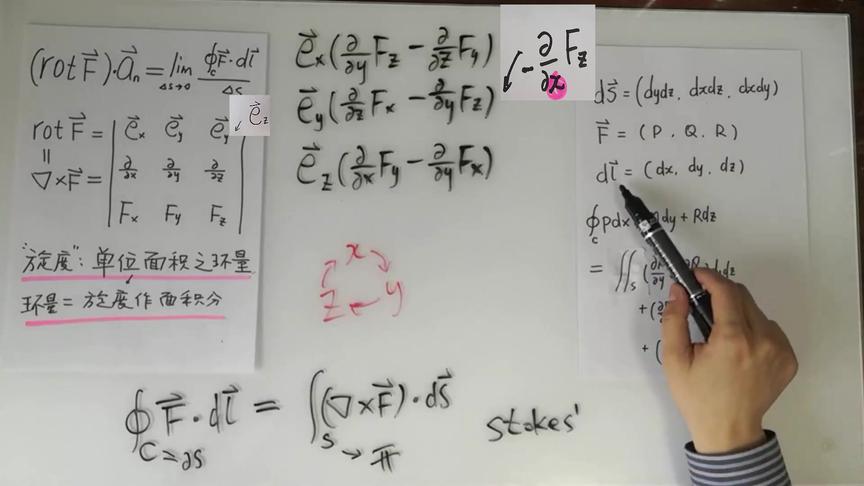 (rot F⃗)·a⃗n = lim Δs→0 ∮c F⃗·dl⃗ / Δs
rot F⃗ = | e⃗x e⃗y e⃗y
e⃗z
||
∇×F⃗ = | ∂/∂x ∂/∂y ∂/∂z |
Fx Fy Fz
"旋度": 单位面积之环量
环量 = 旋度作面积分
e⃗x(∂/∂y Fz − ∂/∂z Fy)
e⃗y(∂/∂z Fx − ∂/∂y Fz)
− ∂/∂x Fz
e⃗z(∂/∂x Fy − ∂/∂y Fx)
x
z y
dS⃗ = (dydz, dxdz, dxdy)
F⃗ = (P, Q, R)
dl⃗ = (dx, dy, dz)
∮c Pdx dy + Rdz
= ∬s
+ (
+ (
∮C=∂S F⃗·dl⃗ = ∫∫S (∇×F⃗)·dS⃗
→ π
stokes'